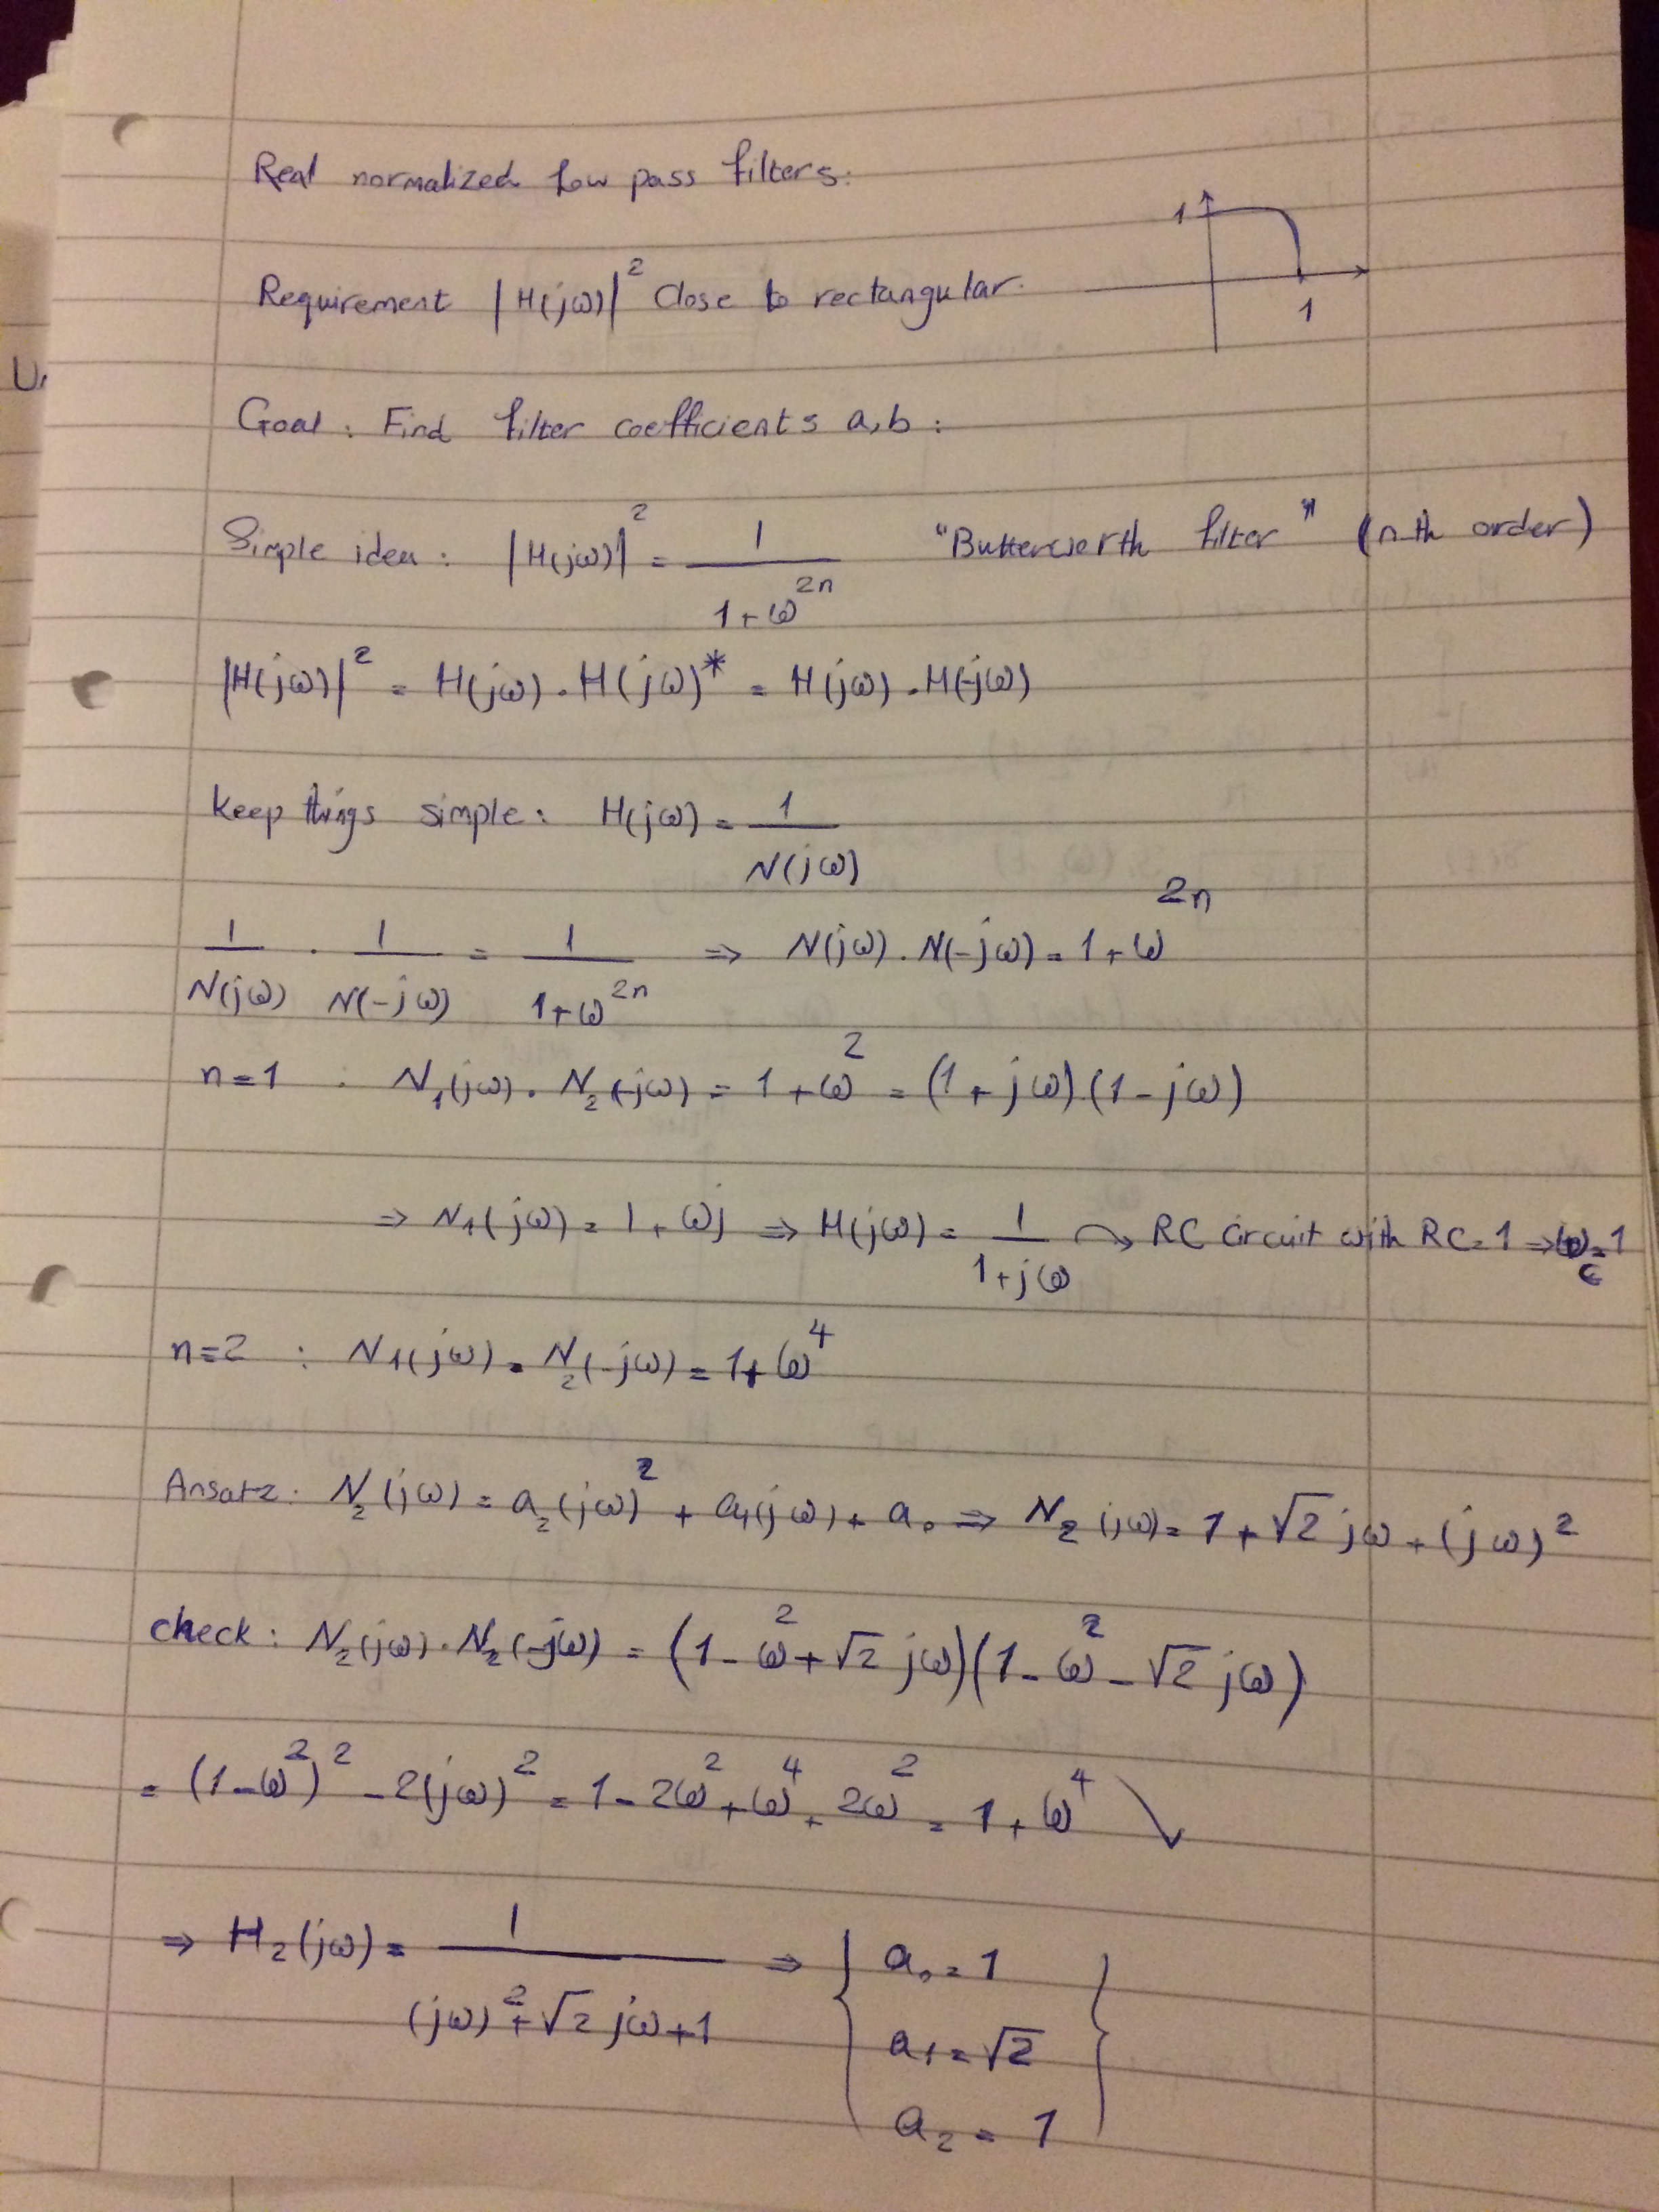 Real normalized low pass filters:
1
Requirement |H(jω)|² Close to rectangular.
1
U
Goal: Find filter coefficients a,b:
Simple idea: |H(jω)|² = 1/(1+ω²ⁿ) "Butterworth filter" (nth order)
|H(jω)|² = H(jω) . H(jω)* = H(jω) . H(-jω)
Keep things simple: H(jω) = 1/N(jω)
1/N(jω) . 1/N(-jω) = 1/(1+ω²ⁿ) ⇒ N(jω) . N(-jω) = 1+ω²ⁿ
n=1 . N₁(jω) . N₂(-jω) = 1+ω² = (1+jω)(1-jω)
⇒ N₁(jω) = 1+ωj ⇒ H(jω) = 1/(1+jω) ↷ RC Circuit with RC=1 ⇒ ω_c=1
n=2 : N₁(jω) . N₂(-jω) = 1+ω⁴
Ansatz: N₂(jω) = a₂(jω)² + a₁(jω) + a₀ ⇒ N₂(jω) = 1+√2jω+(jω)²
check: N₂(jω) . N₂(-jω) = (1-ω²+√2jω)(1-ω²-√2jω)
= (1-ω²)² - 2(jω)² = 1-2ω²+ω⁴+2ω² = 1+ω⁴ ↘
⇒ H₂(jω) = 1/((jω)²+√2jω+1) ⇒ { a₀=1
a₁=√2
a₂=1 }